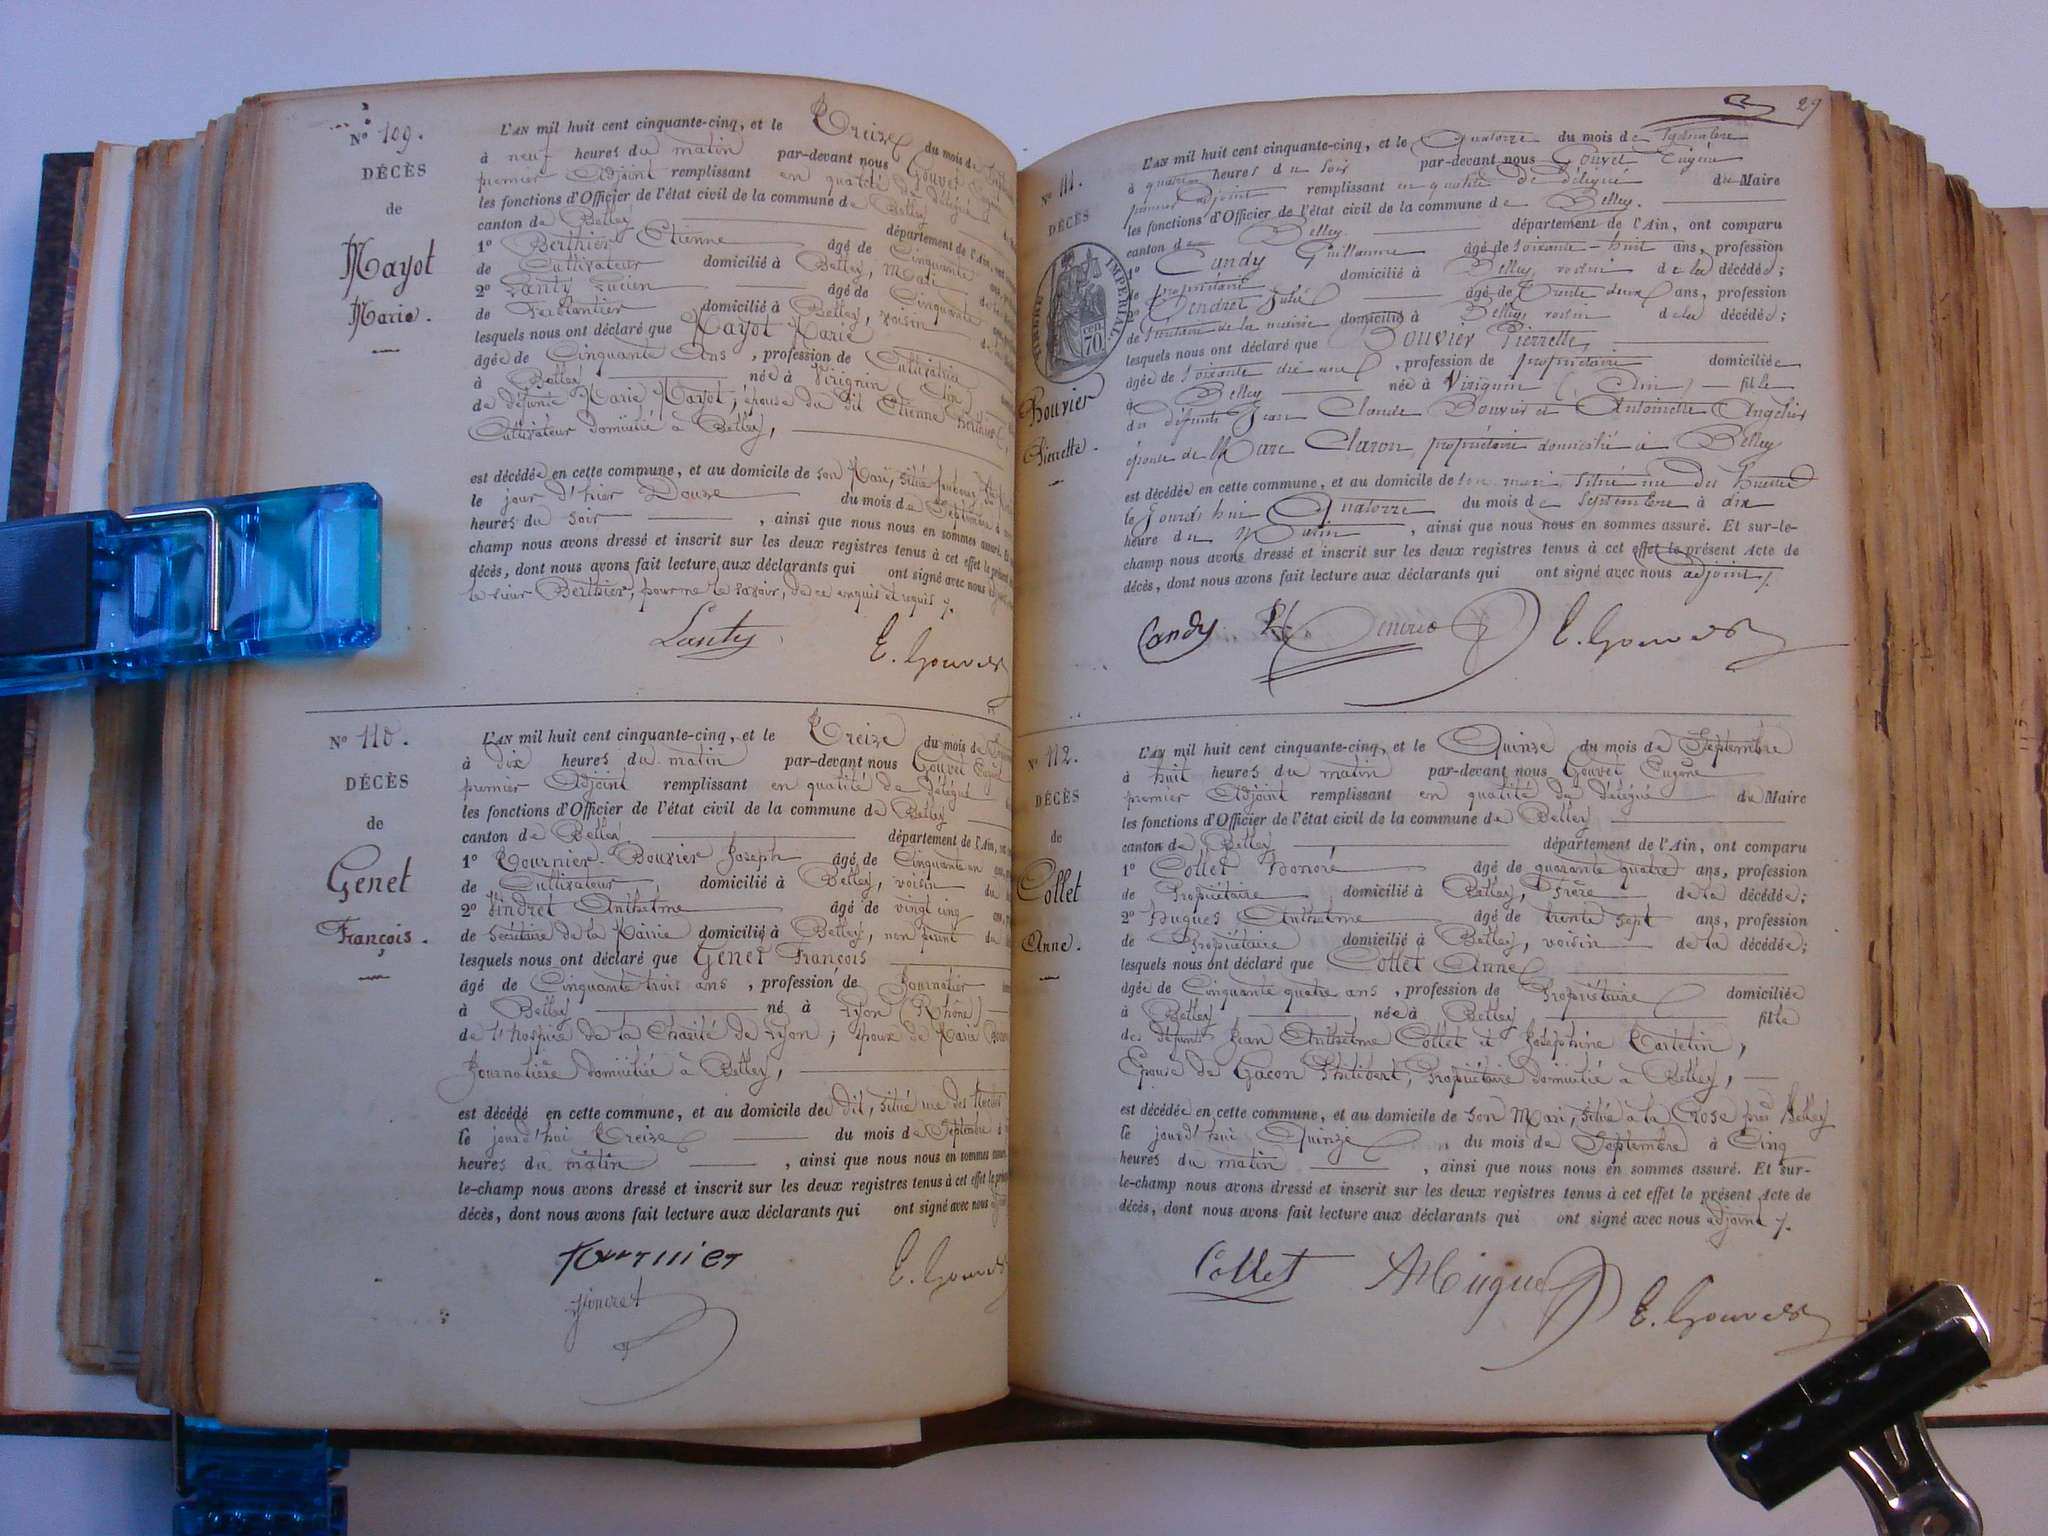 N° 109.
DÉCÈS
de
Mayot
Marie.
L'AN mil huit cent cinquante-cinq, et le Treize du mois de
à neuf heures du matin par-devant nous Gouvet
premier Adjoint remplissant en qualité de délégué
les fonctions d'Officier de l'état civil de la commune de Belley
canton de Belley département de l'Ain,
1° Berthier Etienne âgé de Cinquante
de Cultivateur domicilié à Belley, Mari
2° Lanty Lucien âgé de Cinquante
de Ferblantier domicilié à Belley, voisin
lesquels nous ont déclaré que Mayot Marie
âgée de Cinquante Ans, profession de Cultivatrice
à Belley née à Virignin (Ain)
de défunte Marie Mayot; épouse du dit Etienne Berthier,
Cultivateur domicilié à Belley,
est décédée en cette commune, et au domicile de son Mari, situé
le jour d'hier Douze du mois de Septembre à
heures du soir, ainsi que nous nous en sommes assuré. Et
champ nous avons dressé et inscrit sur les deux registres tenus à cet effet le présent
décès, dont nous avons fait lecture aux déclarants qui ont signé avec nous
le sieur Berthier, pour ne le savoir, de ce enquis et requis /.
Lanty
E. Gouvet
N° 110.
DÉCÈS
de
Genet
François.
L'AN mil huit cent cinquante-cinq, et le Treize du mois de
à dix heures du matin par-devant nous Gouvet
premier Adjoint remplissant en qualité de délégué
les fonctions d'Officier de l'état civil de la commune de Belley
canton de Belley département de l'Ain,
1° Tournier-Bouvier Joseph âgé de Cinquante un
de Cultivateur domicilié à Belley, voisin du
2° Vindret Anthelme âgé de vingt cinq
de Secrétaire de la Mairie domicilié à Belley, non parent du
lesquels nous ont déclaré que Genet François
âgé de Cinquante trois ans, profession de Journalier
à Belley né à Lyon (Rhône)
de l'hospice de la Charité de Lyon; époux de Marie
Journalière domiciliée à Belley,
est décédé en cette commune, et au domicile du dit, situé rue des
le jourd'hui Treize du mois de Septembre à
heures du matin, ainsi que nous nous en sommes assuré.
le-champ nous avons dressé et inscrit sur les deux registres tenus à cet effet le présent
décès, dont nous avons fait lecture aux déclarants qui ont signé avec nous
Tournier
Vindret
E. Gouvet
29
N° 111.
DÉCÈS
TIMBRE IMPÉRIAL
70 cen.
Bouvier
Pierrette.
L'AN mil huit cent cinquante-cinq, et le Quatorze du mois de Septembre
à quatre heures du soir par-devant nous Gouvet Eugène
premier adjoint remplissant en qualité de délégué du Maire
les fonctions d'Officier de l'état civil de la commune de Belley.
canton de Belley département de l'Ain, ont comparu
1° Candy Guillaume âgé de soixante-huit ans, profession
de propriétaire domicilié à Belley, voisin de la décédée;
2° Vindret âgé de trente deux ans, profession
de secrétaire de la mairie domicilié à Belley, voisin de la décédée;
lesquels nous ont déclaré que Bouvier Pierrette,
âgée de soixante dix ans, profession de propriétaire domiciliée
à Belley née à Virignin (Ain) fille
des défunts Jean Claude Bouvier et Antoinette Angelier
épouse de Marc Claron propriétaire domicilié à Belley
est décédée en cette commune, et au domicile de son mari, situé rue des
le jourd'hui Quatorze du mois de Septembre à dix
heure du Matin, ainsi que nous nous en sommes assuré. Et sur-le-
champ nous avons dressé et inscrit sur les deux registres tenus à cet effet le présent Acte de
décès, dont nous avons fait lecture aux déclarants qui ont signé avec nous adjoint /.
Candy
E. Gouvet
N° 112.
DÉCÈS
de
Collet
Anne.
L'AN mil huit cent cinquante-cinq, et le Quinze du mois de Septembre
à huit heures du matin par-devant nous Gouvet Eugène
premier Adjoint remplissant en qualité de délégué du Maire
les fonctions d'Officier de l'état civil de la commune de Belley
canton de Belley département de l'Ain, ont comparu
1° Collet Honoré âgé de quarante quatre ans, profession
de Propriétaire domicilié à Belley, frère de la décédée;
2° Hugues Anthelme âgé de trente sept ans, profession
de Propriétaire domicilié à Belley, voisin de la décédée;
lesquels nous ont déclaré que Collet Anne
âgée de Cinquante quatre ans, profession de Propriétaire domiciliée
à Belley, née à Belley fille
des défunts Jean Anthelme Collet et Joséphine Tartelin,
Epouse de Gacon Philibert, Propriétaire domicilié à Belley,
est décédée en cette commune, et au domicile de son Mari, situé à la Crose près Belley
le jourd'hui Quinze du mois de Septembre à Cinq
heures du matin, ainsi que nous nous en sommes assuré. Et sur-
le-champ nous avons dressé et inscrit sur les deux registres tenus à cet effet le présent Acte de
décès, dont nous avons fait lecture aux déclarants qui ont signé avec nous adjoint /.
Collet
A Hugues
E. Gouvet